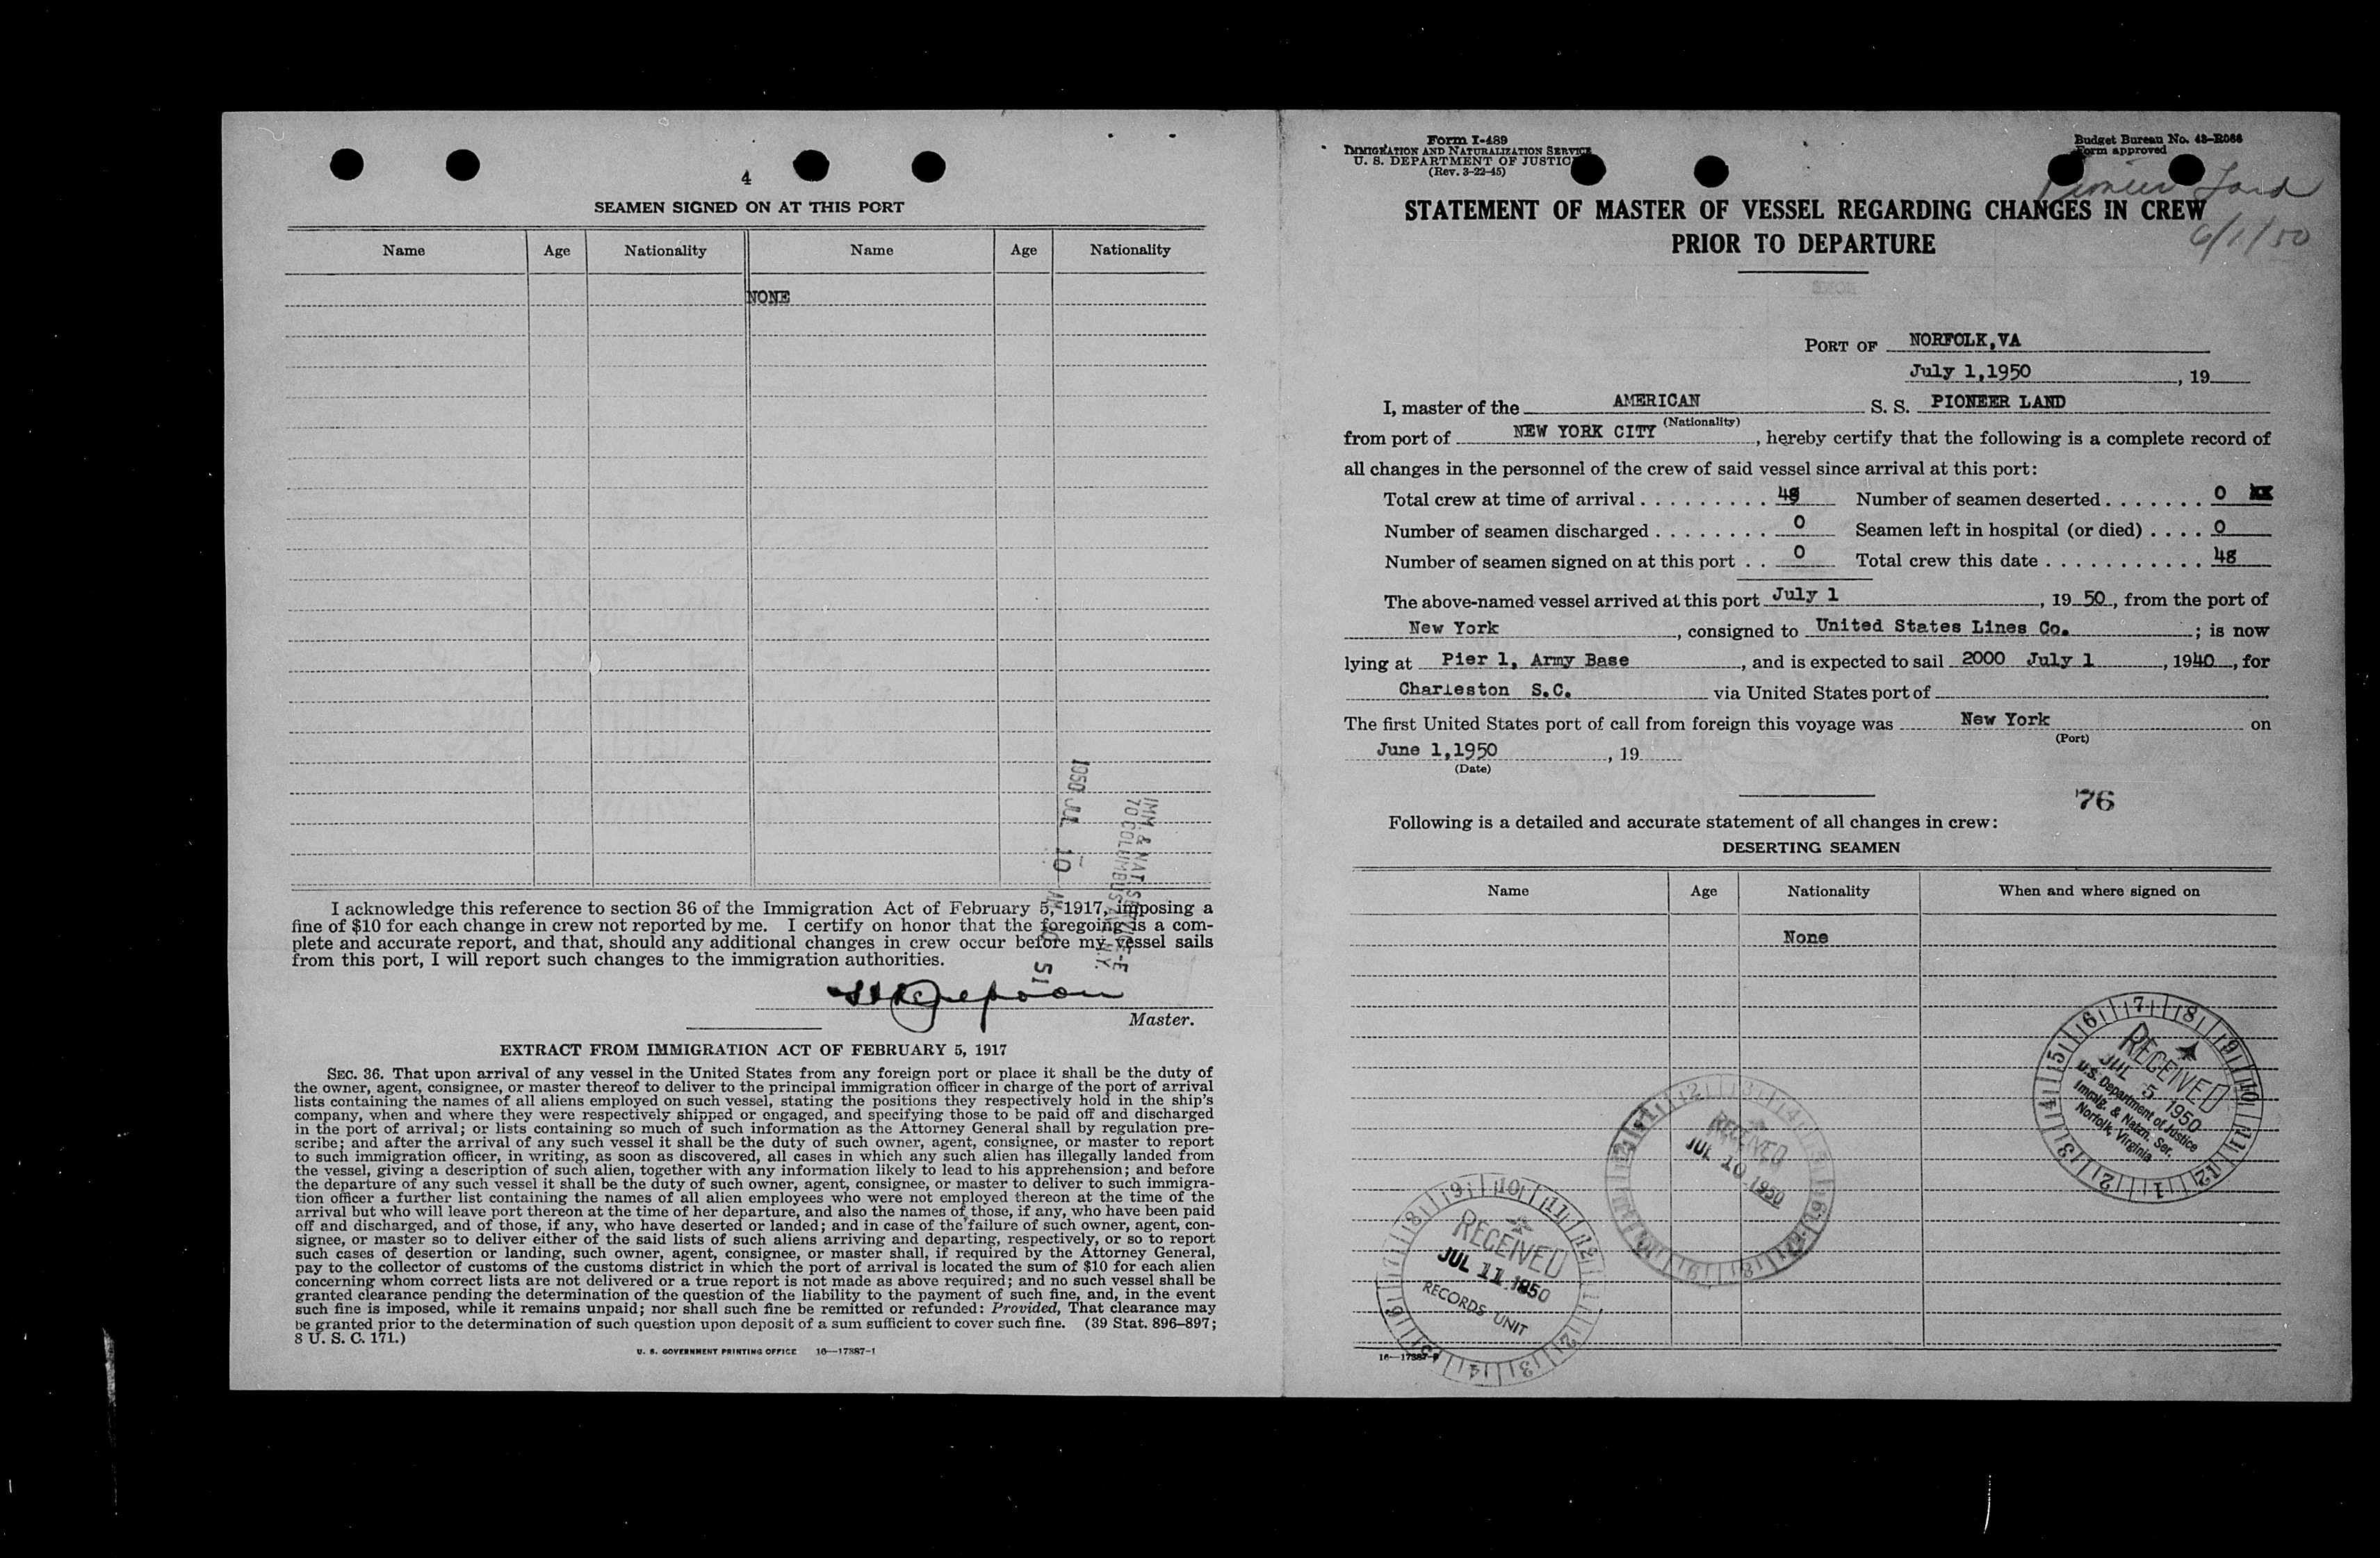 4
SEAMEN SIGNED ON AT THIS PORT
Name Age Nationality Name Age Nationality
NONE
1950 JUL 10 AM 51
IMM. & NAT. SERVICE-E
70 COLUMBUS N.Y.
I acknowledge this reference to section 36 of the Immigration Act of February 5, 1917, imposing a
fine of $10 for each change in crew not reported by me. I certify on honor that the foregoing is a com-
plete and accurate report, and that, should any additional changes in crew occur before my vessel sails
from this port, I will report such changes to the immigration authorities.
Master.
EXTRACT FROM IMMIGRATION ACT OF FEBRUARY 5, 1917
SEC. 36. That upon arrival of any vessel in the United States from any foreign port or place it shall be the duty of
the owner, agent, consignee, or master thereof to deliver to the principal immigration officer in charge of the port of arrival
lists containing the names of all aliens employed on such vessel, stating the positions they respectively hold in the ship's
company, when and where they were respectively shipped or engaged, and specifying those to be paid off and discharged
in the port of arrival; or lists containing so much of such information as the Attorney General shall by regulation pre-
scribe; and after the arrival of any such vessel it shall be the duty of such owner, agent, consignee, or master to report
to such immigration officer, in writing, as soon as discovered, all cases in which any such alien has illegally landed from
the vessel, giving a description of such alien, together with any information likely to lead to his apprehension; and before
the departure of any such vessel it shall be the duty of such owner, agent, consignee, or master to deliver to such immigra-
tion officer a further list containing the names of all alien employees who were not employed thereon at the time of the
arrival but who will leave port thereon at the time of her departure, and also the names of those, if any, who have been paid
off and discharged, and of those, if any, who have deserted or landed; and in case of the failure of such owner, agent, con-
signee, or master so to deliver either of the said lists of such aliens arriving and departing, respectively, or so to report
such cases of desertion or landing, such owner, agent, consignee, or master shall, if required by the Attorney General,
pay to the collector of customs of the customs district in which the port of arrival is located the sum of $10 for each alien
concerning whom correct lists are not delivered or a true report is not made as above required; and no such vessel shall be
granted clearance pending the determination of the question of the liability to the payment of such fine, and, in the event
such fine is imposed, while it remains unpaid; nor shall such fine be remitted or refunded: Provided, That clearance may
be granted prior to the determination of such question upon deposit of a sum sufficient to cover such fine. (39 Stat. 896–897;
8 U. S. C. 171.)
U. S. GOVERNMENT PRINTING OFFICE 16—17387-1
Form I-489
IMMIGRATION AND NATURALIZATION SERVICE
U. S. DEPARTMENT OF JUSTICE
(Rev. 3-22-45)
Budget Bureau No. 43-R066
Form approved
Pioneer Land
6/1/50
STATEMENT OF MASTER OF VESSEL REGARDING CHANGES IN CREW
PRIOR TO DEPARTURE
PORT OF NORFOLK,VA
July 1,1950, 19
I, master of the AMERICAN S. S. PIONEER LAND
(Nationality)
from port of NEW YORK CITY, hereby certify that the following is a complete record of
all changes in the personnel of the crew of said vessel since arrival at this port:
Total crew at time of arrival . . . . . . . . . 48 Number of seamen deserted . . . . . . . 0
Number of seamen discharged . . . . . . . . 0 Seamen left in hospital (or died) . . . . 0
Number of seamen signed on at this port . . 0 Total crew this date . . . . . . . . . . . 48
The above-named vessel arrived at this port July 1, 19 50, from the port of
New York, consigned to United States Lines Co.; is now
lying at Pier 1, Army Base, and is expected to sail 2000 July 1, 1940, for
Charleston S.C. via United States port of
The first United States port of call from foreign this voyage was New York on
(Port)
June 1,1950, 19
(Date)
76
Following is a detailed and accurate statement of all changes in crew:
DESERTING SEAMEN
Name Age Nationality When and where signed on
None
RECEIVED
JUL 5 1950
U.S. Department of Justice
Immig. & Natzn. Ser.
Norfolk, Virginia
RECEIVED
JUL 10 1950
RECEIVED
JUL 11 1950
RECORDS UNIT
16—17387-1